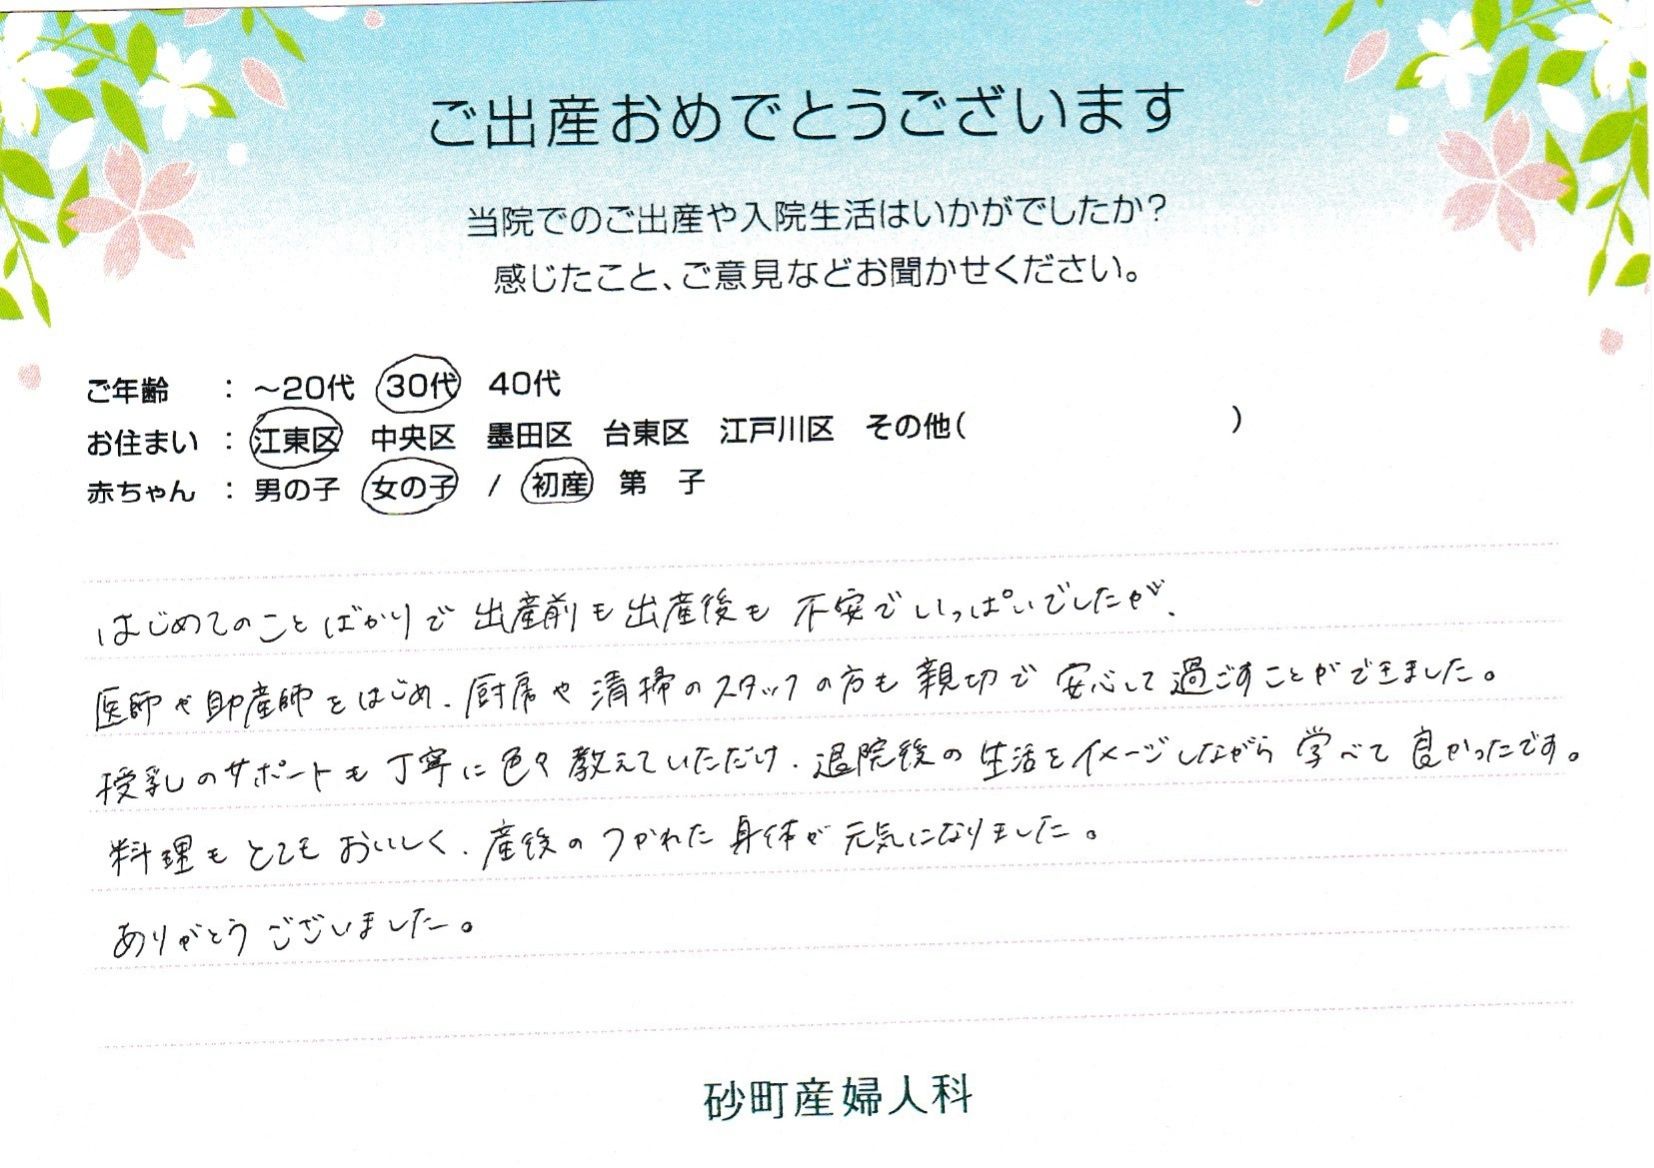 ご出産おめでとうございます
当院でのご出産や入院生活はいかがでしたか?
感じたこと、ご意見などお聞かせください。
ご年齢 : ～20代 30代 40代
お住まい : 江東区 中央区 墨田区 台東区 江戸川区 その他( )
赤ちゃん : 男の子 女の子 / 初産 第 子
はじめてのことばかりで 出産前も出産後も 不安でいっぱいでしたが、
医師や助産師をはじめ、厨房や清掃のスタッフの方も親切で 安心して過ごすことができました。
授乳のサポートも丁寧に色々教えていただけ、退院後の生活をイメージしながら学べて良かったです。
料理もとてもおいしく、産後のつかれた身体が元気になりました。
ありがとうございました。
砂町産婦人科